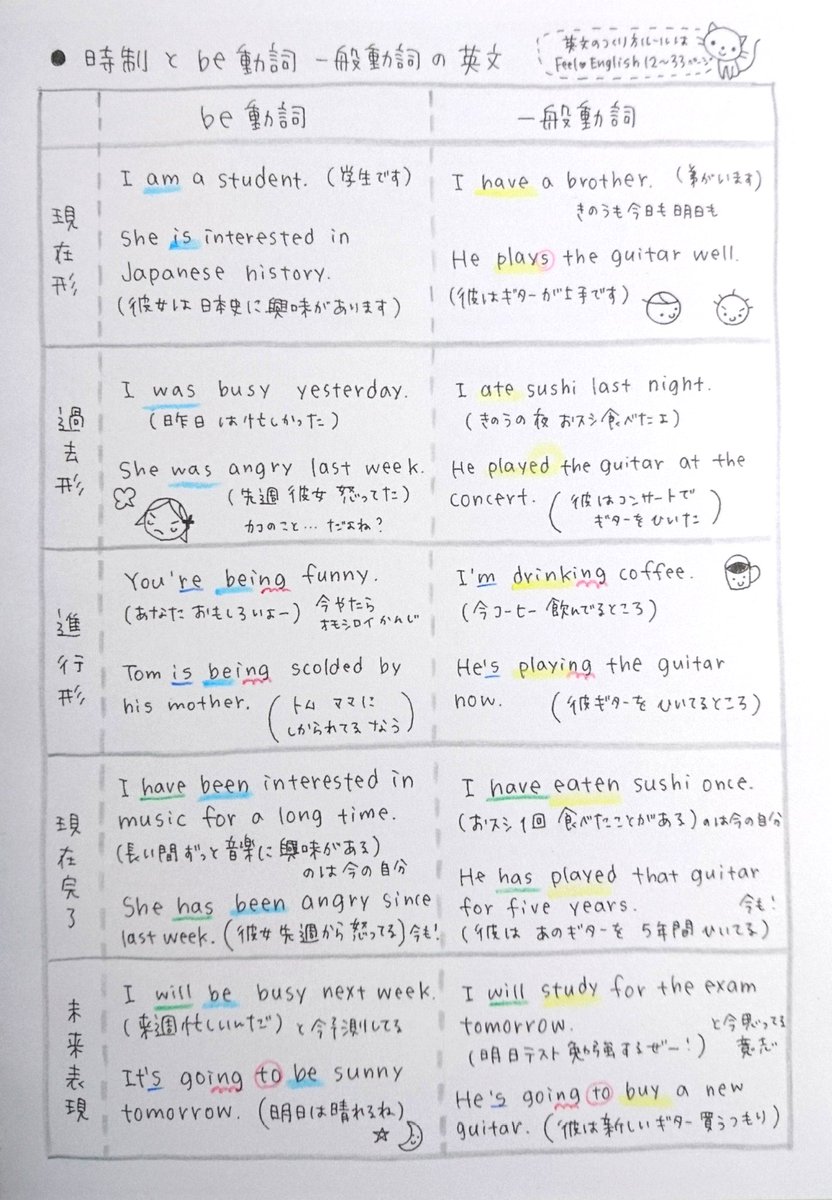 ● 時制と be動詞 一般動詞の英文
英文のつくり方ルールは
Feel♥English 12〜33ページ
be動詞
一般動詞
現在形
I am a student. (学生です)
She is interested in
Japanese history.
(彼女は日本史に興味があります)
I have a brother. (弟がいます)
きのうも今日も明日も
He plays the guitar well.
(彼はギターが上手です)
過去形
I was busy yesterday.
(昨日は忙しかった)
She was angry last week.
(先週彼女怒ってた)
カコのこと…だよね?
I ate sushi last night.
(きのうの夜おスシ食べたェ)
He played the guitar at the
concert. (彼はコンサートで
ギターをひいた)
進行形
You're being funny.
(あなたおもしろいよー) 今やたら
オモシロイかんじ
Tom is being scolded by
his mother. (トム ママに
しかられてる なう)
I'm drinking coffee.
(今コーヒー飲んでるところ)
He's playing the guitar
now. (彼ギターをひいてるところ)
現在完了
I have been interested in
music for a long time.
(長い間ずっと音楽に興味がある)
のは今の自分
She has been angry since
last week. (彼女先週から怒ってる)今も!
I have eaten sushi once.
(おスシ1回食べたことがある)のは今の自分
He has played that guitar
for five years. 今も!
(彼はあのギターを5年間ひいてる)
未来表現
I will be busy next week.
(来週忙しいんだ)と今予測してる
It's going to be sunny
tomorrow. (明日は晴れるね)
I will study for the exam
tomorrow. と今思ってる
(明日テスト勉強するぜー!) 意志
He's going to buy a new
guitar. (彼は新しいギター買うつもり)